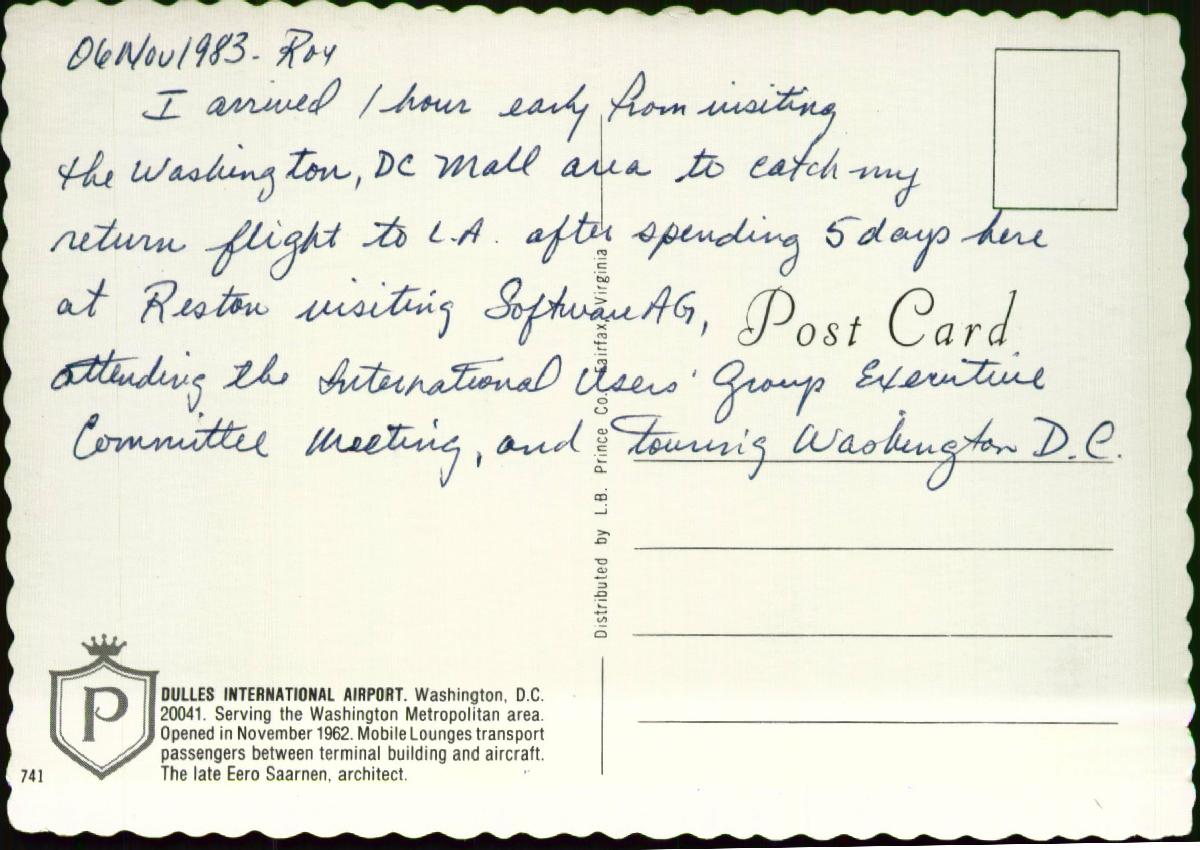 06Nov1983- Roy
I arrived 1 hour early from visiting
the Washington, DC Mall area to catch my
return flight to L.A. after spending 5 days here
at Reston visiting Software AG,
attending the International Users' Group Executive
Committee Meeting, and touring Washington D.C.
Post Card
Distributed by L.B. Prince Co. Fairfax, Virginia
P
DULLES INTERNATIONAL AIRPORT. Washington, D.C.
20041. Serving the Washington Metropolitan area.
Opened in November 1962. Mobile Lounges transport
passengers between terminal building and aircraft.
The late Eero Saarnen, architect.
741